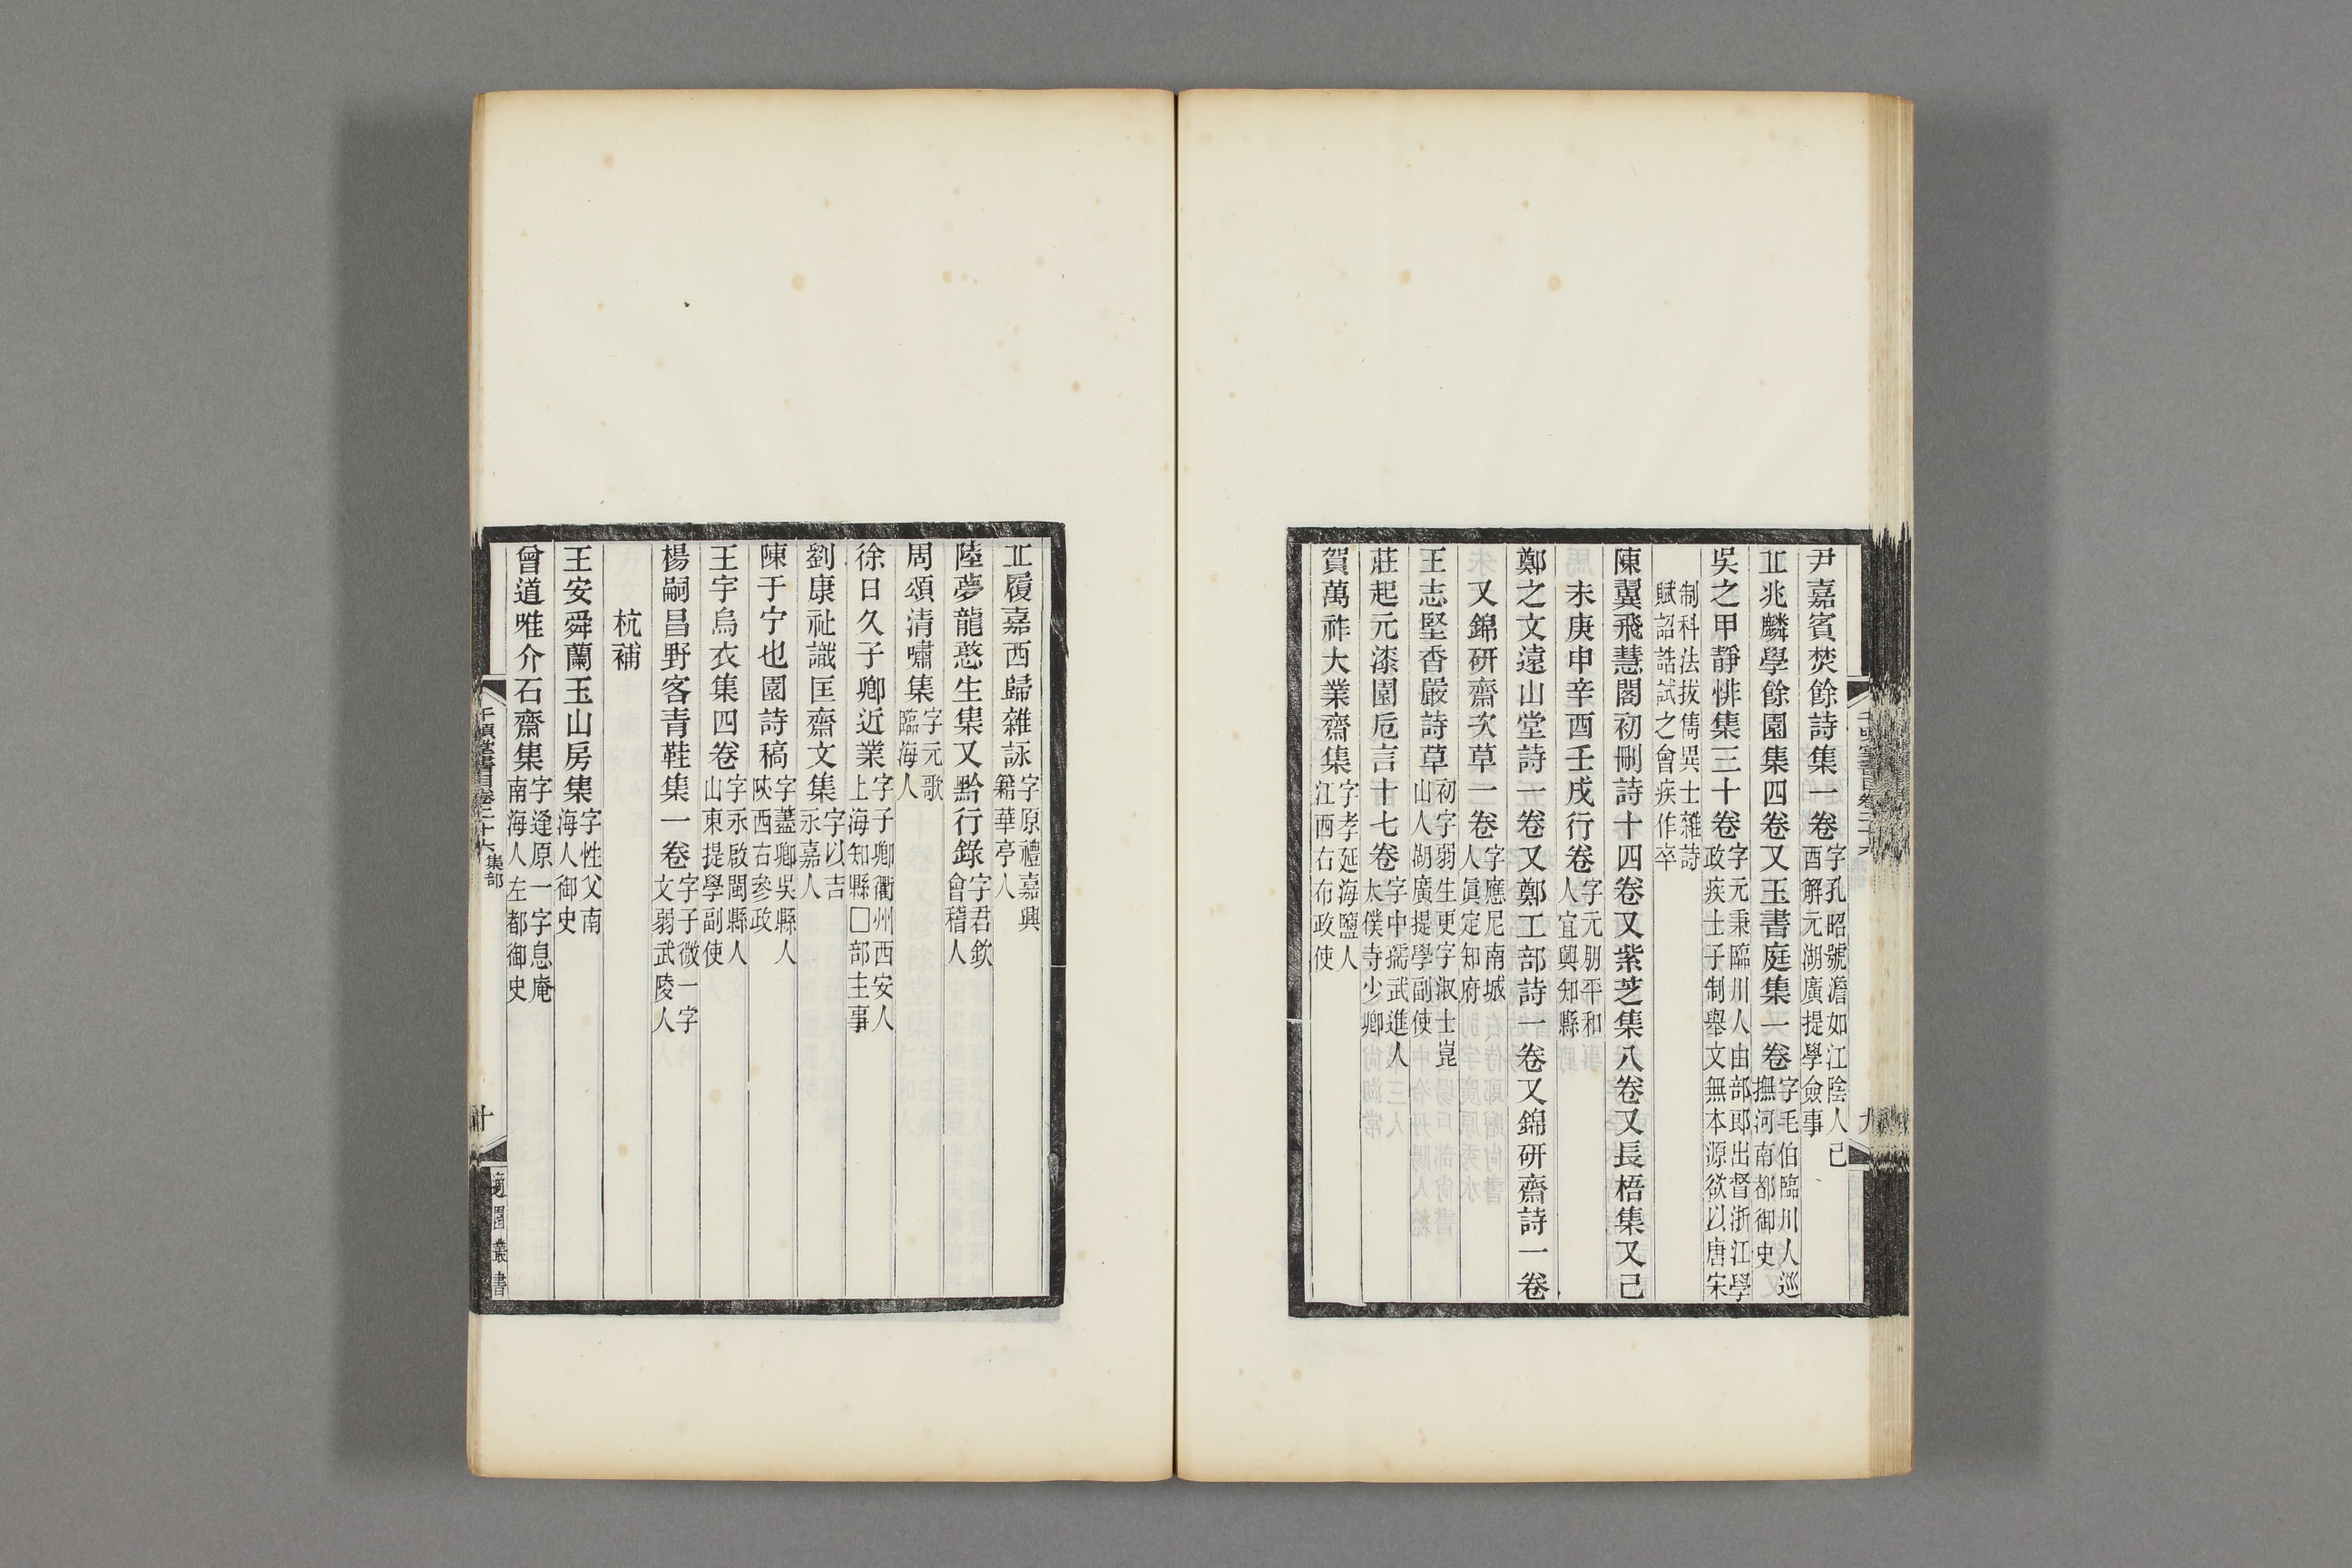 尹嘉賓焚餘詩集一卷字孔昭號澹如江陰人己酉解元湖廣提學僉事
丠兆麟學餘園集四卷又玉書庭集一卷字毛伯臨川人巡撫河南都御史
吳之甲靜悱集三十卷字元秉臨川人由部郎出督浙江學政疾士子制舉文無本源欲以唐宋
制科法拔儁異士雜詩賦詔誥試之會疾作卒
陳翼飛慧閣初刪詩十四卷又紫芝集八卷又長梧集又己
未庚申辛酉壬戌行卷字元朋平和人宜興知縣
鄭之文遠山堂詩一卷又鄭工部詩一卷又錦研齋詩一卷
又錦研齋次草二卷字應尼南城人眞定知府
王志堅香嚴詩草初字弱生更字淑士崑山人湖廣提學副使
莊起元漆園卮言十七卷字中孺武進人太僕寺少卿
賀萬祚大業齋集字孝延海鹽人江西右布政使
丠履嘉西歸雜詠字原禮嘉興籍華亭人
陸夢龍憨生集又黔行錄字君欽會稽人
周頌清嘯集字元歌臨海人
徐日久子卿近業字子卿衢州西安人上海知縣□部主事
劉康祉識匡齋文集字以吉永嘉人
陳于宁也園詩稿字藎卿吳縣人陝西右參政
王宇烏衣集四卷字永啟閩縣人山東提學副使
楊嗣昌野客青鞋集一卷字子微一字文弱武陵人
杭補
王安舜蘭玉山房集字性父南海人御史
曾道唯介石齋集字逢原一字息庵南海人左都御史
千頃堂書目卷二十六集部
十
適園叢書